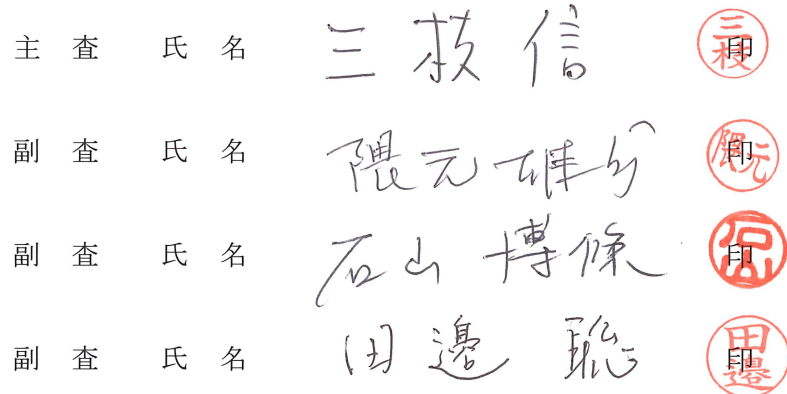 主査 氏名 三枝信 印 三枝
副査 氏名 隈元雄介 印 隈元
副査 氏名 石山博條 印
副査 氏名 田邊聡 印 田邉